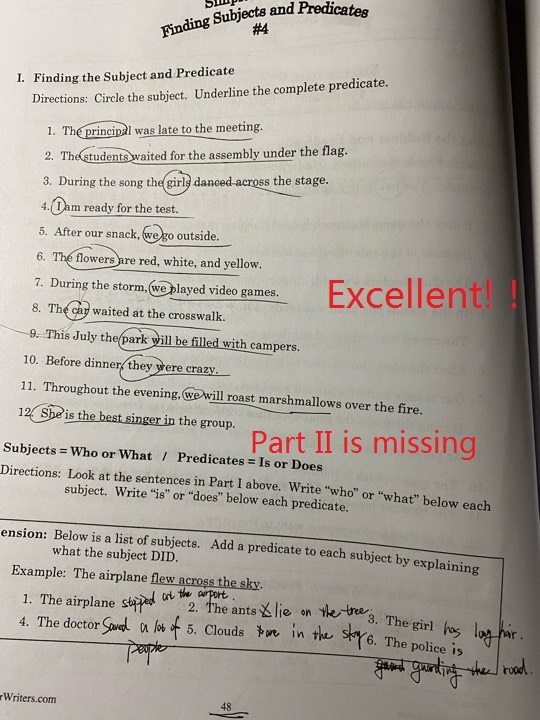 Finding Subjects and Predicates
#4
I. Finding the Subject and Predicate
Directions: Circle the subject. Underline the complete predicate.
1. The principal was late to the meeting.
2. The students waited for the assembly under the flag.
3. During the song the girls danced across the stage.
4. I am ready for the test.
5. After our snack, we go outside.
6. The flowers are red, white, and yellow.
7. During the storm, we played video games.
Excellent! !
8. The car waited at the crosswalk.
9. This July the park will be filled with campers.
10. Before dinner, they were crazy.
11. Throughout the evening, we will roast marshmallows over the fire.
12. She is the best singer in the group.
Part II is missing
Subjects = Who or What / Predicates = Is or Does
Directions: Look at the sentences in Part I above. Write “who” or “what” below each
subject. Write “is” or “does” below each predicate.
ension: Below is a list of subjects. Add a predicate to each subject by explaining
what the subject DID.
Example: The airplane flew across the sky.
1. The airplane stopped at the airport. 2. The ants lie on the tree. 3. The girl has long hair.
4. The doctor saved a lot of people 5. Clouds are in the sky 6. The police is guarding the road.
rWriters.com
48